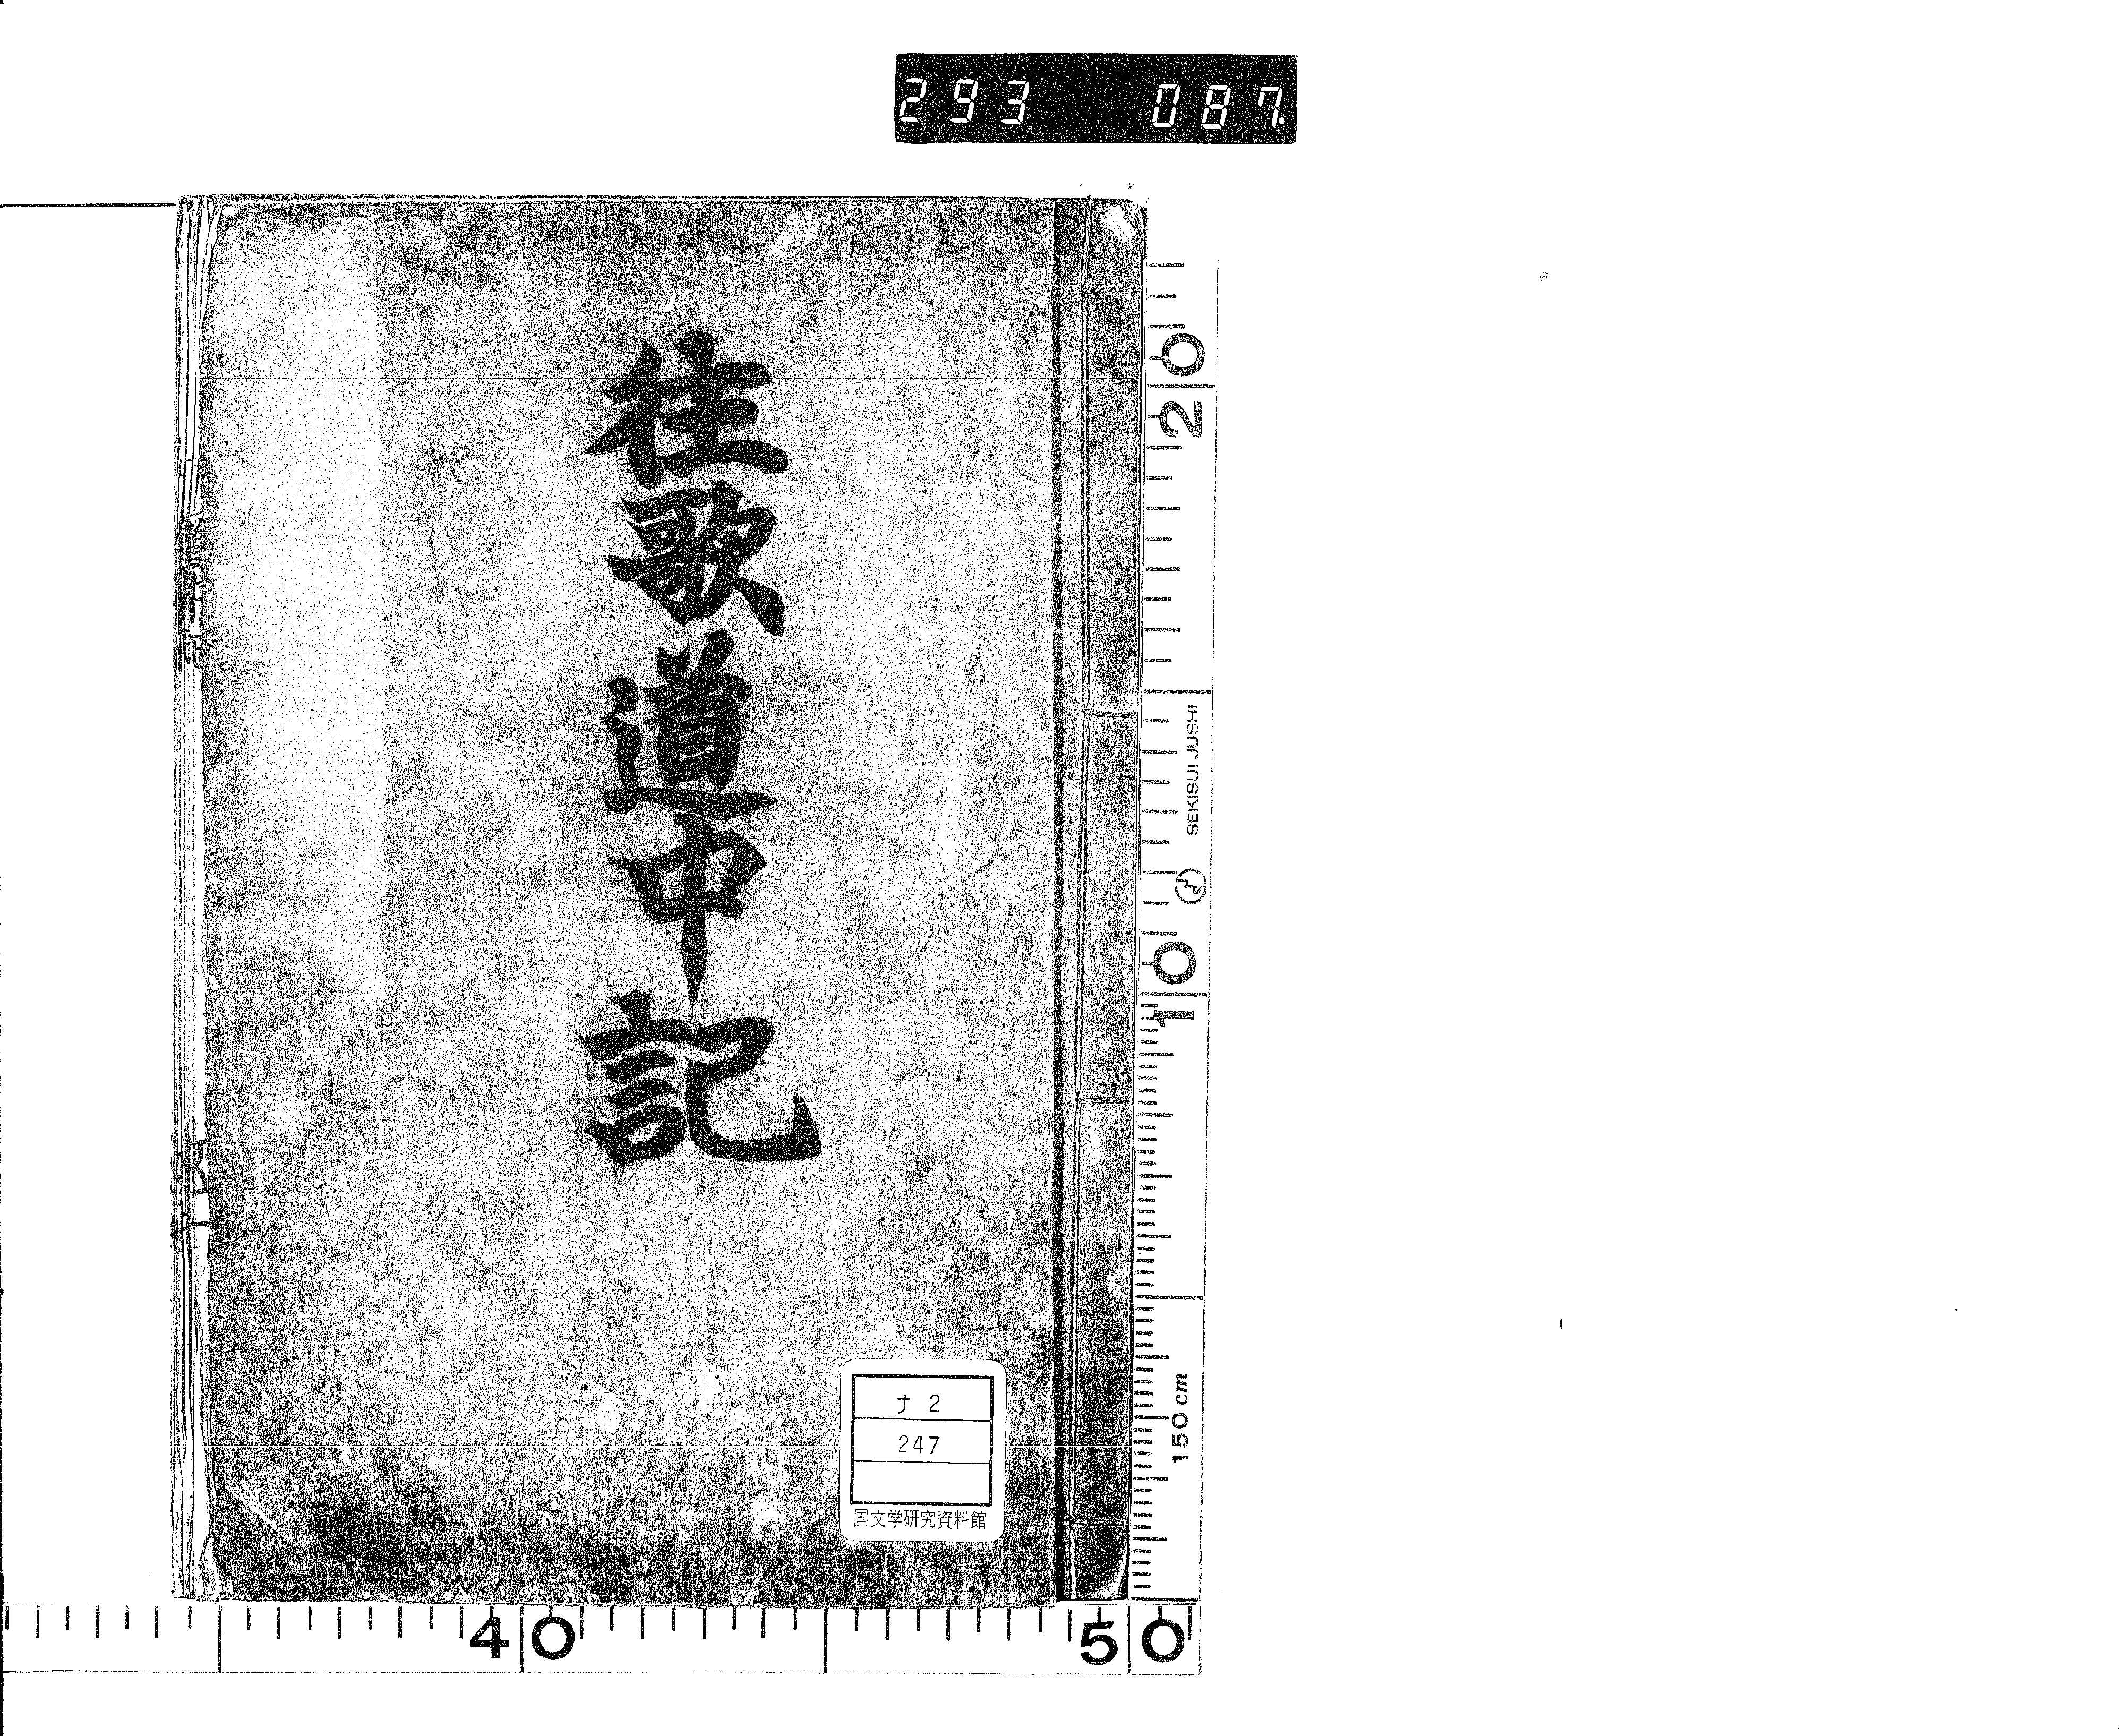 293 087.
往歌道中記
ナ 2
247
国文学研究資料館
20
SEKISUI JUSHI
10
150cm
40
50